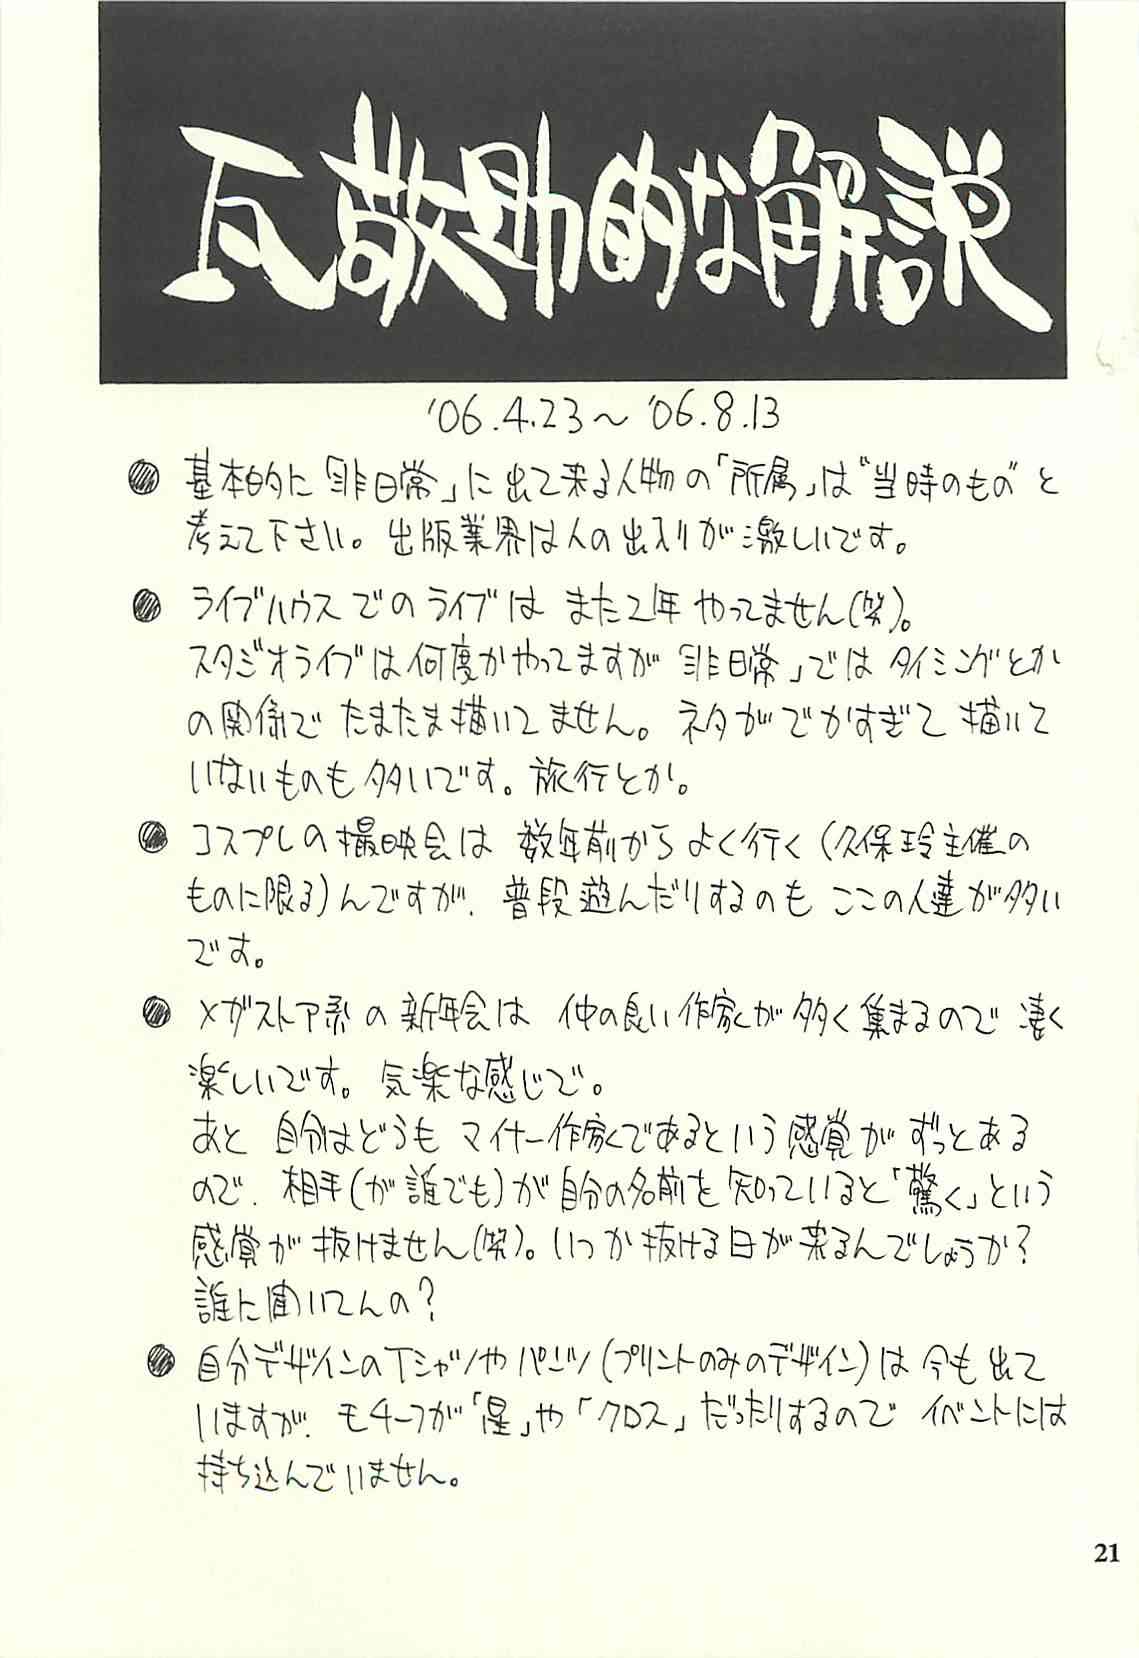 瓦敬助的な解説
'06.4.23～'06.8.13
● 基本的に「非日常」に出て来る人物の「所属」は“当時のもの”と
考えて下さい。出版業界は人の出入りが激しいです。
● ライブハウスでのライブは また21年 やってません(笑)。
スタジオライブは何度かやってますが「非日常」では タイミングとか
の関係で たまたま描いてません。ネタがでかすぎて 描いて
いないものも多いです。旅行とか。
● コスプレの撮映会は 数年前から よく行く(久保玲主催の
ものに限る)んですが、普段遊んだりするのも ここの人達が多い
です。
● メガストア系の新年会は 仲の良い作家が多く集まるので 凄く
楽しいです。気楽な感じで。
あと 自分はどうも マイナー作家であるという感覚が ずっとある
ので、相手(が誰でも)が自分の名前を知っていると「驚く」という
感覚が 抜けません(笑)。いつか抜ける日が来るんでしょうか？
誰に聞いてんの？
● 自分デザインのTシャツやパンツ(プリントのみのデザイン)は 今も出て
いますが、モチーフが「星」や「クロス」だったりするので イベントには
持ち込んでいません。
21